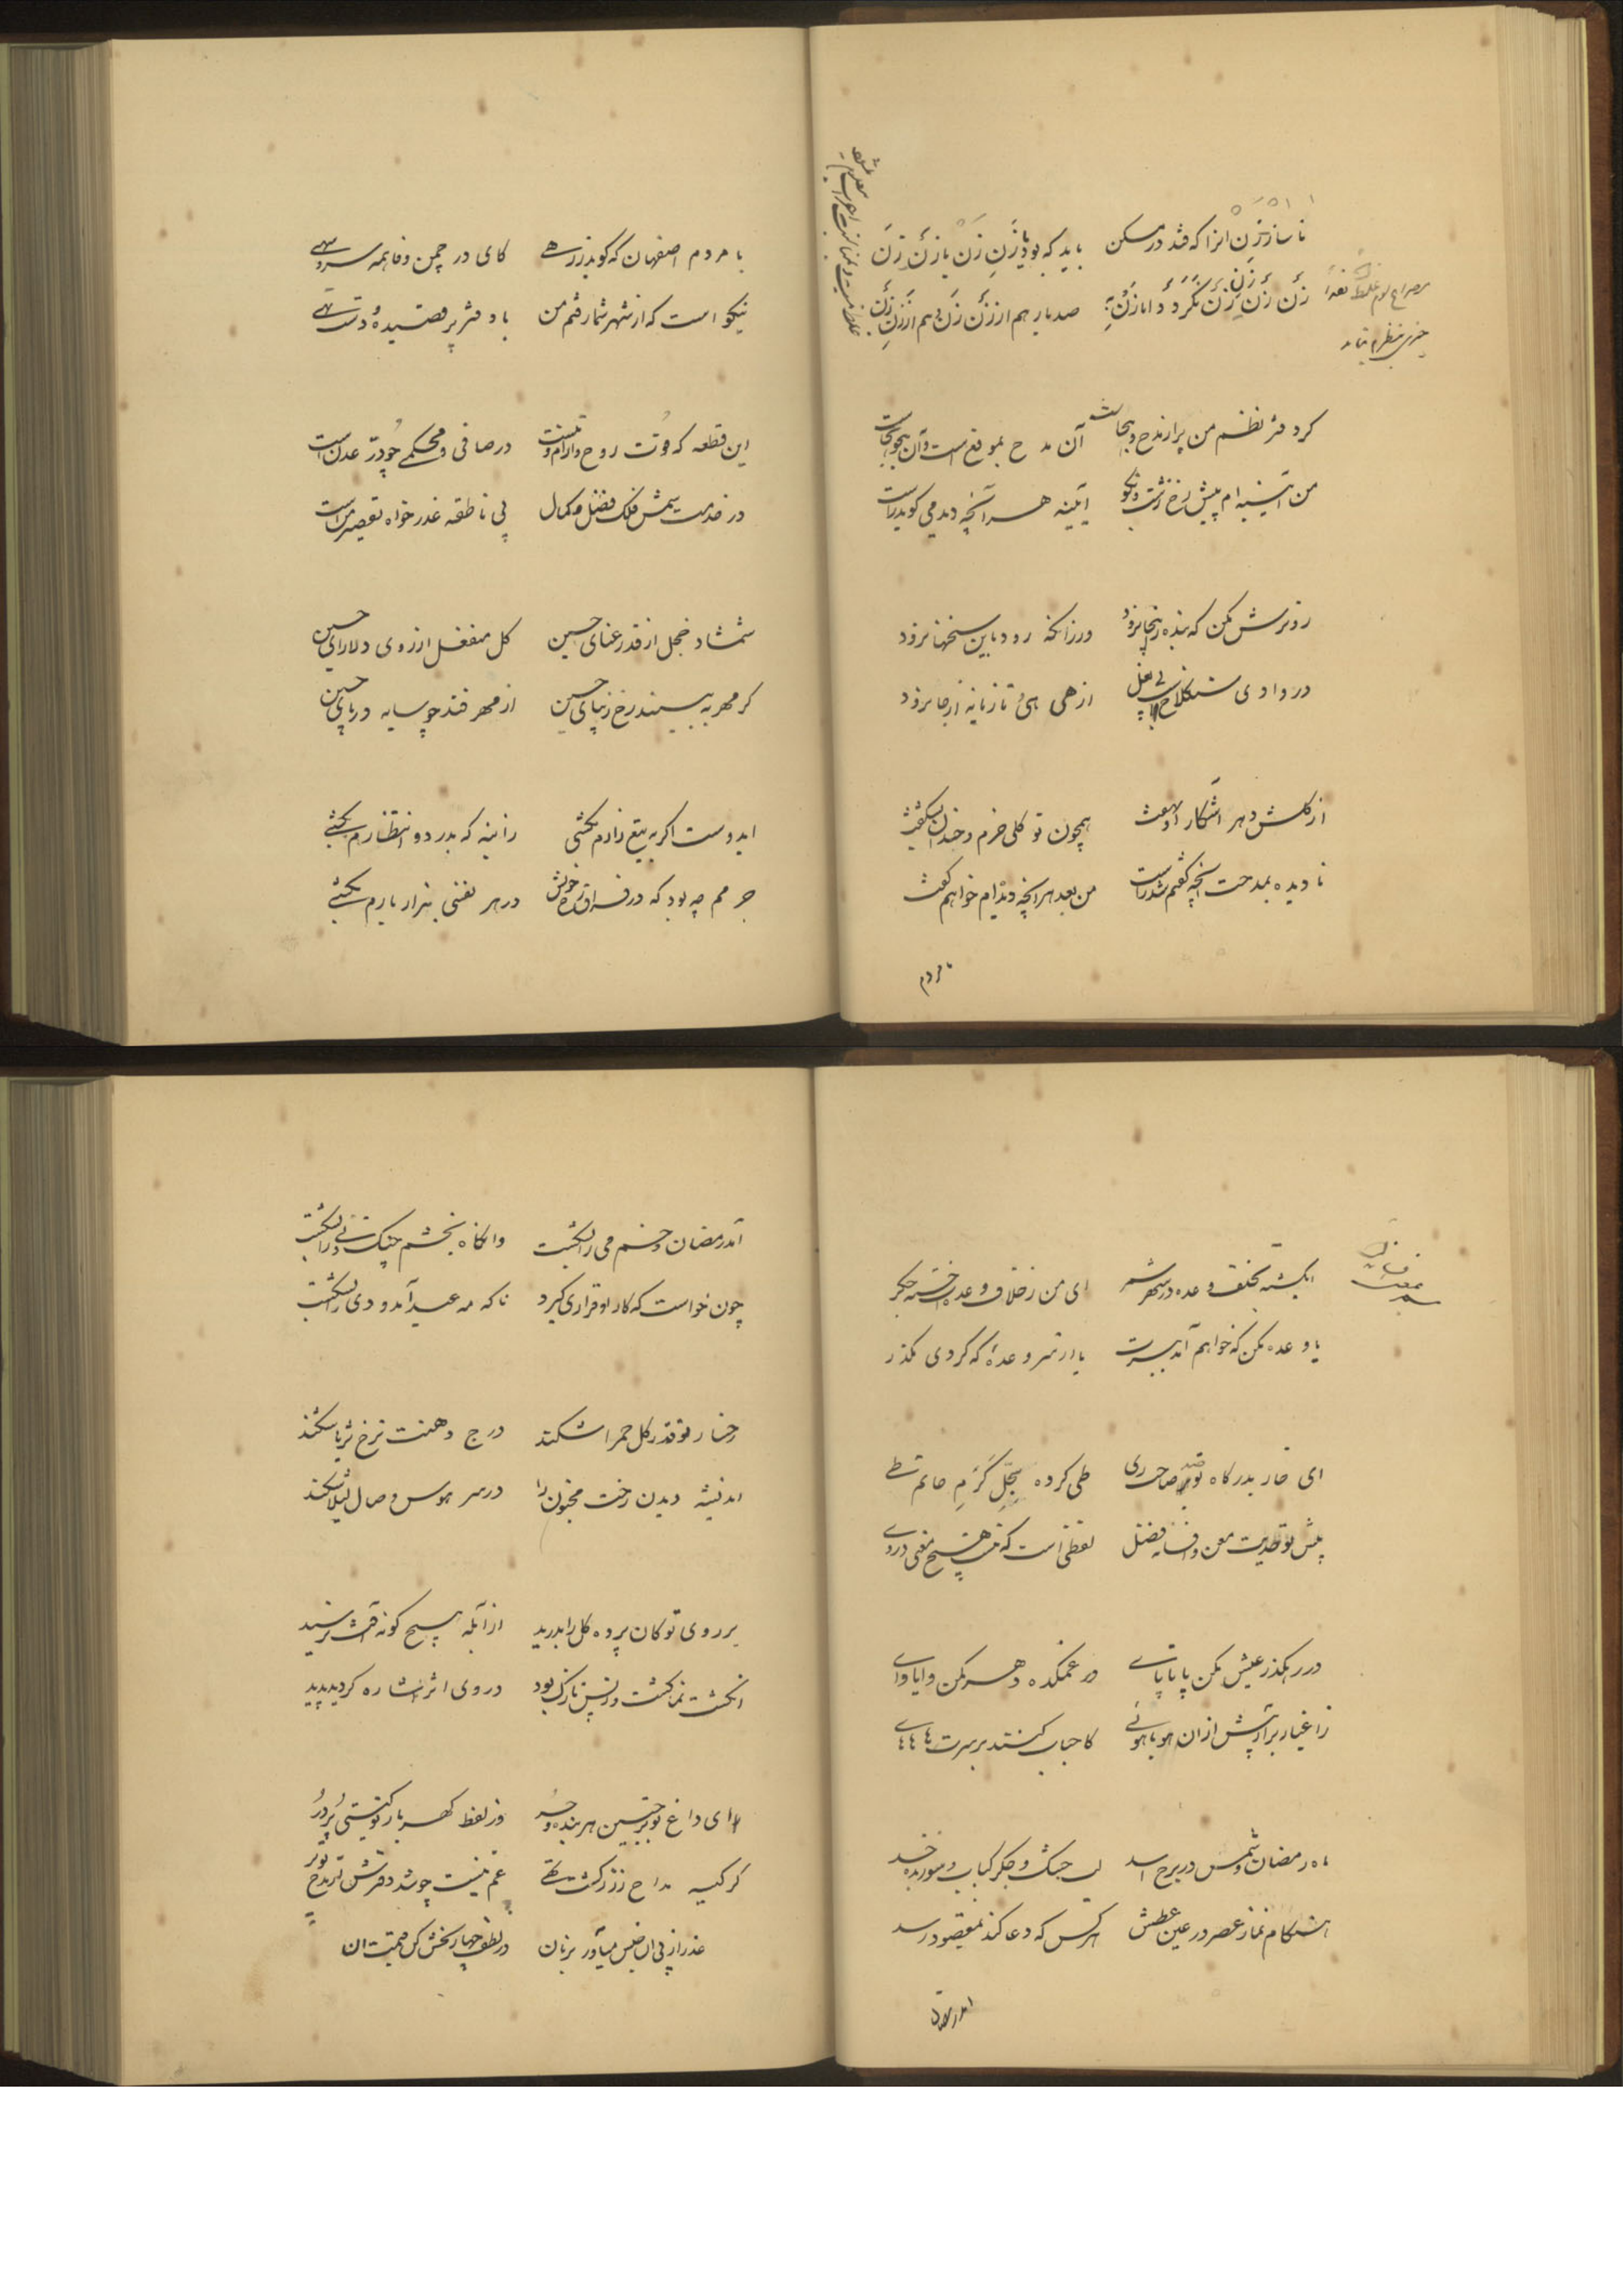 ناساز زن انرا که فتد در مسکن باید که بود با زن زن یا زن زن
زن زن زن زن نکردد اما زن صد بار هم از زن زن هم از زن زن
مصراع سوم غلط
چیزی بنظرم نیامد
کر دفتر نظم من پر از مدح و هجاست آن مدح بموقع است و آن هجو بجاست
من آئینه ام پیش رخ زشت و نکو آیینه هر آنچه دید می کوید راست
رو ترش مکن که بنده زینجا نرود ور زانکه رود باین سخنها نرود
در وادی سنکلاخ از هی هی و تازیانه از جا نرود
از کلشن دهر آشکار و نهفت همچون تو کلی خرم و خندان نشکفت
نادیده بمدحت آنچه کفتم شد راست من بعد هر آنچه دیده ام خواهم کفت
با مردم
با مردم اصفهان که کوید ز رهی کای در چمن وفا همه سرو سهی
نیکو است که از شهر شما رفتم من با دفتر پر قصیده و دست تهی
این قطعه که قوت روح و آرام تنست در صافی و محکمی چو در عدن است
در خدمت شمس فلک فضل و کمال بی ناطقه عذر خواه تقصیر من است
شمشاد خجل از قد رعنای حسین کل منفعل از روی دلارای حسین
کر مهر به بیند رخ زیبای حسین از مهر فتد چو سایه در پای حسین
ایدوست اکر به تیغ زارم بکشی زان به که بدرد انتظارم بکشی
جرمم چه بود که در فراق رخ خویش در هر نفسی هزار بارم بکشی
ایکشته بخلف وعده در شهر سمر ای من ز خلاف وعده ات خسته جکر
یا وعده مکن که خواهم آمد ببرت یا از سر وعده که کردی مکذر
ای خار بدرکاه تو صد صاحب ری طی کرده سجل کرم حاتم طی
پیش تو حدیث معن و افسانه فضل لفظی است که نیست هیچ معنی در وی
در رهکذر عیش مکن پا تا پای در غمکده دهر مکن وایاوای
زاغیار برآر پیش از آن هو یا هوئی کاحباب کنند بر سرت هاهاهای
ماه رمضان و شمس در برج اسد لب خشک و جکر کباب و
هنکام نماز عصر در عین عطش هر کس که دعا کند بمقصود رسد
آمد رمضان
آمد رمضان و خم می را بشکست وانکاه بخشم چنک و نی را بشکست
چون خواست که کار او قراری کیرد ناکه مه عید آمد و دی را بشکست
رخسار تو قدر کل حمرا شکند درج دهنت نرخ ثریا شکند
اندیشه دیدن رخت مجنون را در سر هوس وصال لیلا شکند
بر روی تو کان پرده کل را بدرید از آبله هیچ کونه آفت نرسید
انکشت نما کشت و ز بس نازک بود در وی اثر اشاره کردید پدید
ای داغ تو بر جبین هر بنده و حر وز لفظ کهر بار تو کیتی پر در
کر کیسه مداح ز زر کشت تهی غم نیست چو شد دفترش از مدح تو پر
عذر از پی آن میآور بزبان در لطف بهار بخش کن قیمت آن